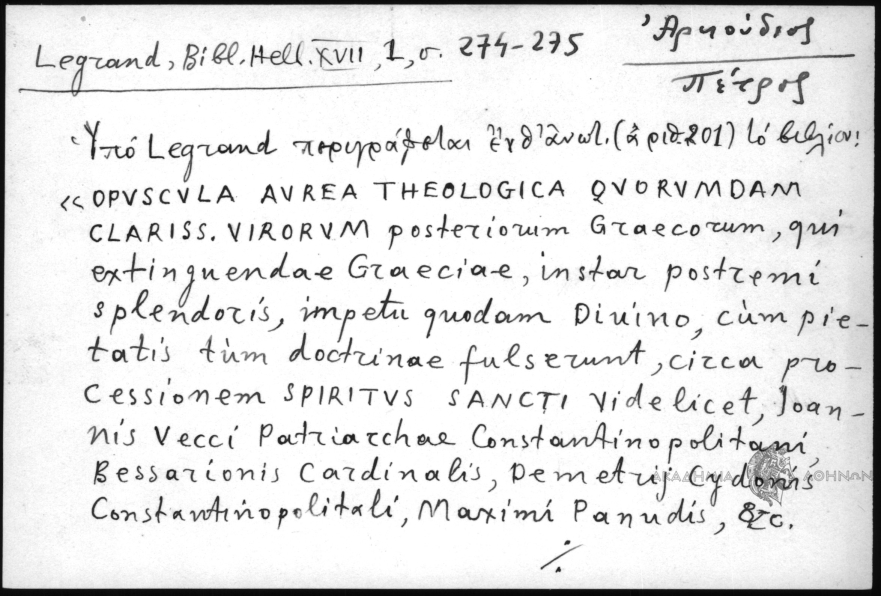 Legrand, Bibl. Hell. XVII, 1, σ. 274-275
Ἀρκούδιος
Πέτρος
Ὑπό Legrand περιγράφεται ἐνθ' ἀνωτ. (ἀριθ. 201) τό βιβλίον:
«OPVSCVLA AVREA THEOLOGICA QVORVMDAM
CLARISS. VIRORVM posteriorum Graecorum, qui
extinguendae Graeciae, instar postremi
splendoris, impetu quodam Diuino, cùm pie-
tatis tùm doctrinae fulserunt, circa pro-
cessionem SPIRITVS SANCTI videlicet, Joan-
nis Vecci Patriarchae Constantinopolitani,
Bessarionis Cardinalis, Demetrij Cydonis
Constantinopolitali, Maximi Panudis, &c.
./.
ΑΚΑΔΗΜΙΑ ΑΘΗΝΩΝ